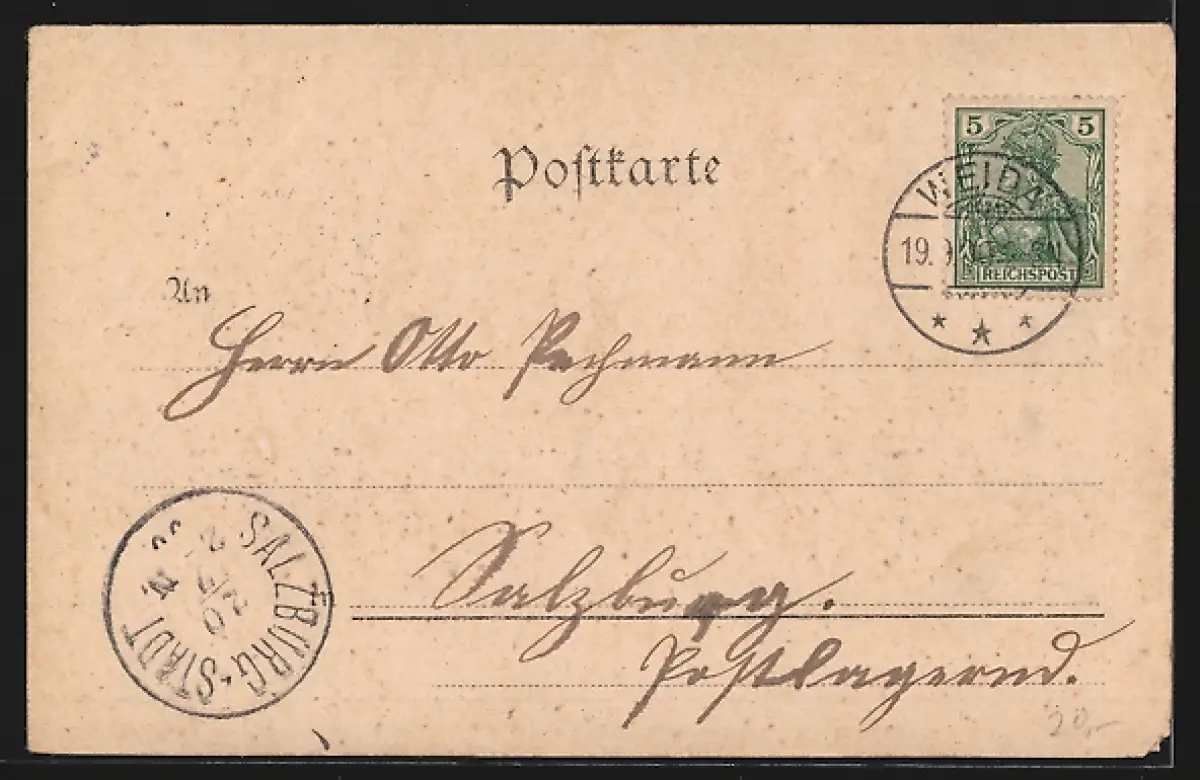 Postkarte
5 5
REICHSPOST
WEIDA
19. 9.
An
Herrn Otto Pechmann
Salzburg.
Postlagernd.
SALZBURG-STADT
20,-